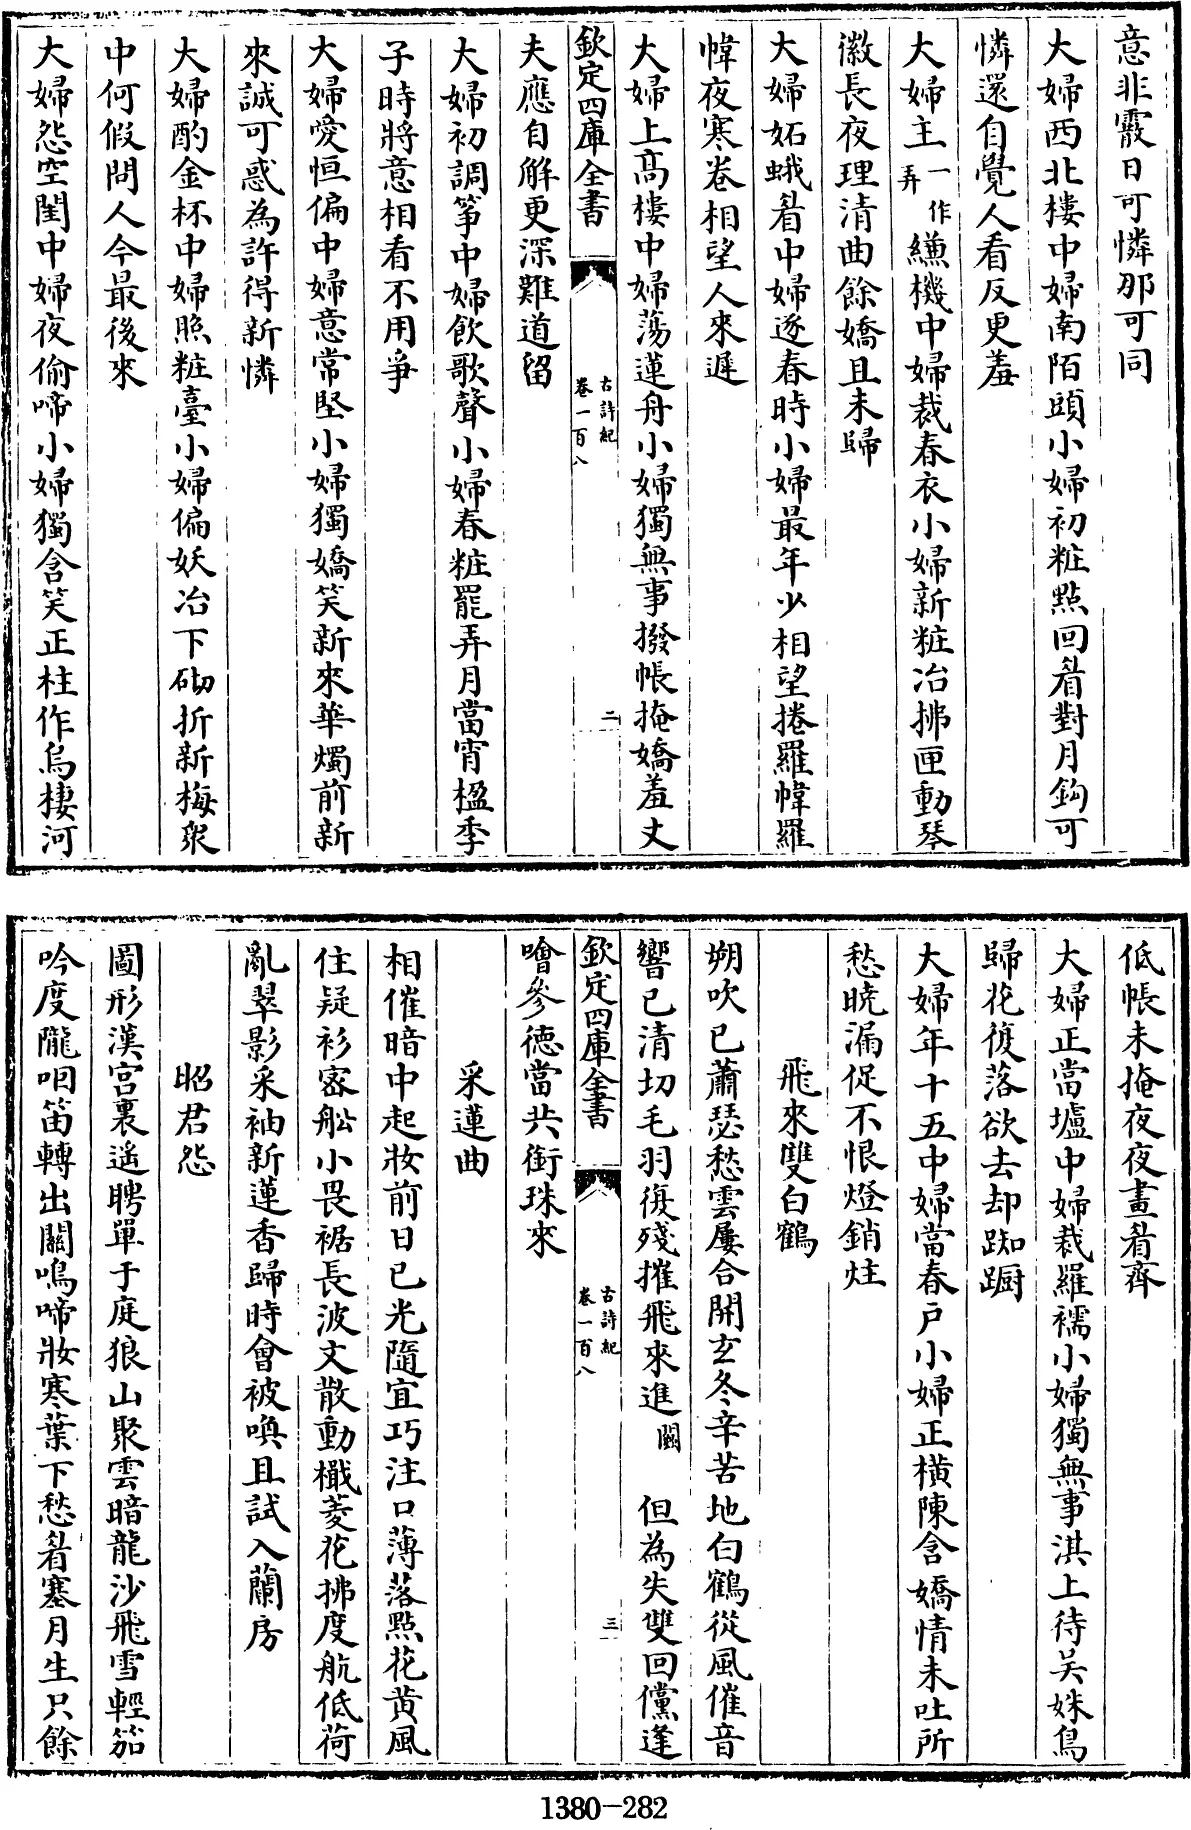 意非霰日可憐那可同
大婦西北樓中婦南陌頭小婦初粧點回看對月鈎可
憐還自覺人看反更羞
大婦主一作弄縑機中婦裁春衣小婦新粧冶拂匣動琴
徽長夜理清曲餘嬌且未歸
大婦妬蛾眉中婦逐春時小婦最年少相望捲羅幃羅
幃夜寒卷相望人來遲
大婦上髙樓中婦蕩蓮舟小婦獨無事撥帳掩嬌羞丈
欽定四庫全書
古詩紀
卷一百八
二
夫應自解更深難道留
大婦初調筝中婦飲歌聲小婦春粧罷弄月當宵楹季
子時將意相看不用爭
大婦愛恒偏中婦意常堅小婦獨嬌笑新來華燭前新
來誠可惑為許得新憐
大婦酌金杯中婦照粧臺小婦偏妖冶下砌折新梅衆
中何假問人今最後來
大婦怨空閨中婦夜偷啼小婦獨含笑正柱作烏棲河
低帳未掩夜夜畫眉齊
大婦正當壚中婦裁羅襦小婦獨無事淇上待吳姝鳥
歸花復落欲去却踟蹰
大婦年十五中婦當春户小婦正橫陳含嬌情未吐所
愁曉漏促不恨燈銷炷
飛來雙白鶴
朔吹已蕭瑟愁雲屢合開玄冬辛苦地白鶴從風催音
響已清切毛羽復殘摧飛來進闕 但為失雙回儻逢
欽定四庫全書
古詩紀
卷一百八
三
噲參德當共銜珠來
采蓮曲
相催暗中起妝前日已光隨宜巧注口薄落點花黄風
住疑衫密船小畏裾長波文散動檝菱花拂度航低荷
亂翠影采袖新蓮香歸時會被喚且試入蘭房
昭君怨
圖形漢宫裏遥聘單于庭狼山聚雲暗龍沙飛雪輕笳
吟度隴咽笛轉出關鳴啼妝寒葉下愁眉塞月生只餘
1380-282